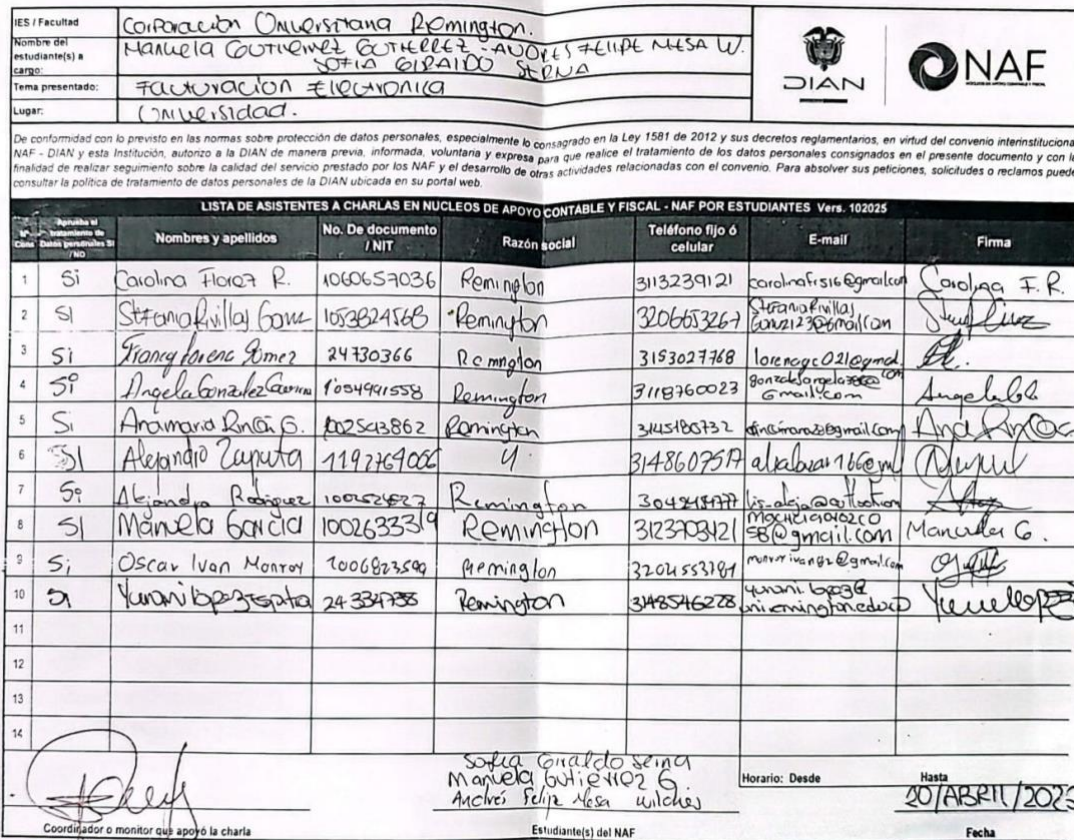 IES / Facultad Corporación Universitaria Remington.
Nombre del estudiante(s) a cargo: Manuela GUTIERREZ GUTIERREZ - ANDRES FELIPE MESA W.
SOFIA GIRALDO SERNA
Tema presentado: Facturación Electronica
Lugar: Universidad.
DIAN
NAF
NÚCLEOS DE APOYO CONTABLE Y FISCAL
De conformidad con lo previsto en las normas sobre protección de datos personales, especialmente lo consagrado en la Ley 1581 de 2012 y sus decretos reglamentarios, en virtud del convenio interinstituciona
NAF - DIAN y esta Institución, autorizo a la DIAN de manera previa, informada, voluntaria y expresa para que realice el tratamiento de los datos personales consignados en el presente documento y con la
finalidad de realizar seguimiento sobre la calidad del servicio prestado por los NAF y el desarrollo de otras actividades relacionadas con el convenio. Para absolver sus peticiones, solicitudes o reclamos puede
consultar la política de tratamiento de datos personales de la DIAN ubicada en su portal web.
LISTA DE ASISTENTES A CHARLAS EN NUCLEOS DE APOYO CONTABLE Y FISCAL - NAF POR ESTUDIANTES Vers. 102025
Nº Cons Aprueba el tratamiento de Datos personales SI / NO Nombres y apellidos No. De documento / NIT Razón social Teléfono fijo ó celular E-mail Firma
1 Si Carolina Florez R. 1060657036 Remington 3113239121 carolinafr516@gmail.com Carolina F. R.
2 SI Stefania Rivillas 1053824568 Remington 3206653267
3 Si Francy Lorena Gomez 24730366 Remington 3153027768 lorenagc021@gmail.
4 Si Angela Gonzalez 1054991558 Remington 3118760023
5 Si Anamaria Rincón G. 1002543862 Remington 3145180732
6 SI Alejandro Zapata 1192764066 4
7 Si Alejandra Rodriguez Remington
8 SI Manuela Garcia 1002633319 Remington 3123703421 58@gmail.com Manuela G.
9 Si Oscar Ivan Monroy Remington 3204553781
10 SI Yurani lopez 24334738 Remington 3148546228
11
12
13
14
Sofia Giraldo Serna
Manuela Gutiérrez G
Andrés Felipe Mesa wilches
Horario: Desde Hasta
20/ABRIL/202
Coordinador o monitor que apoyó la charla Estudiante(s) del NAF Fecha